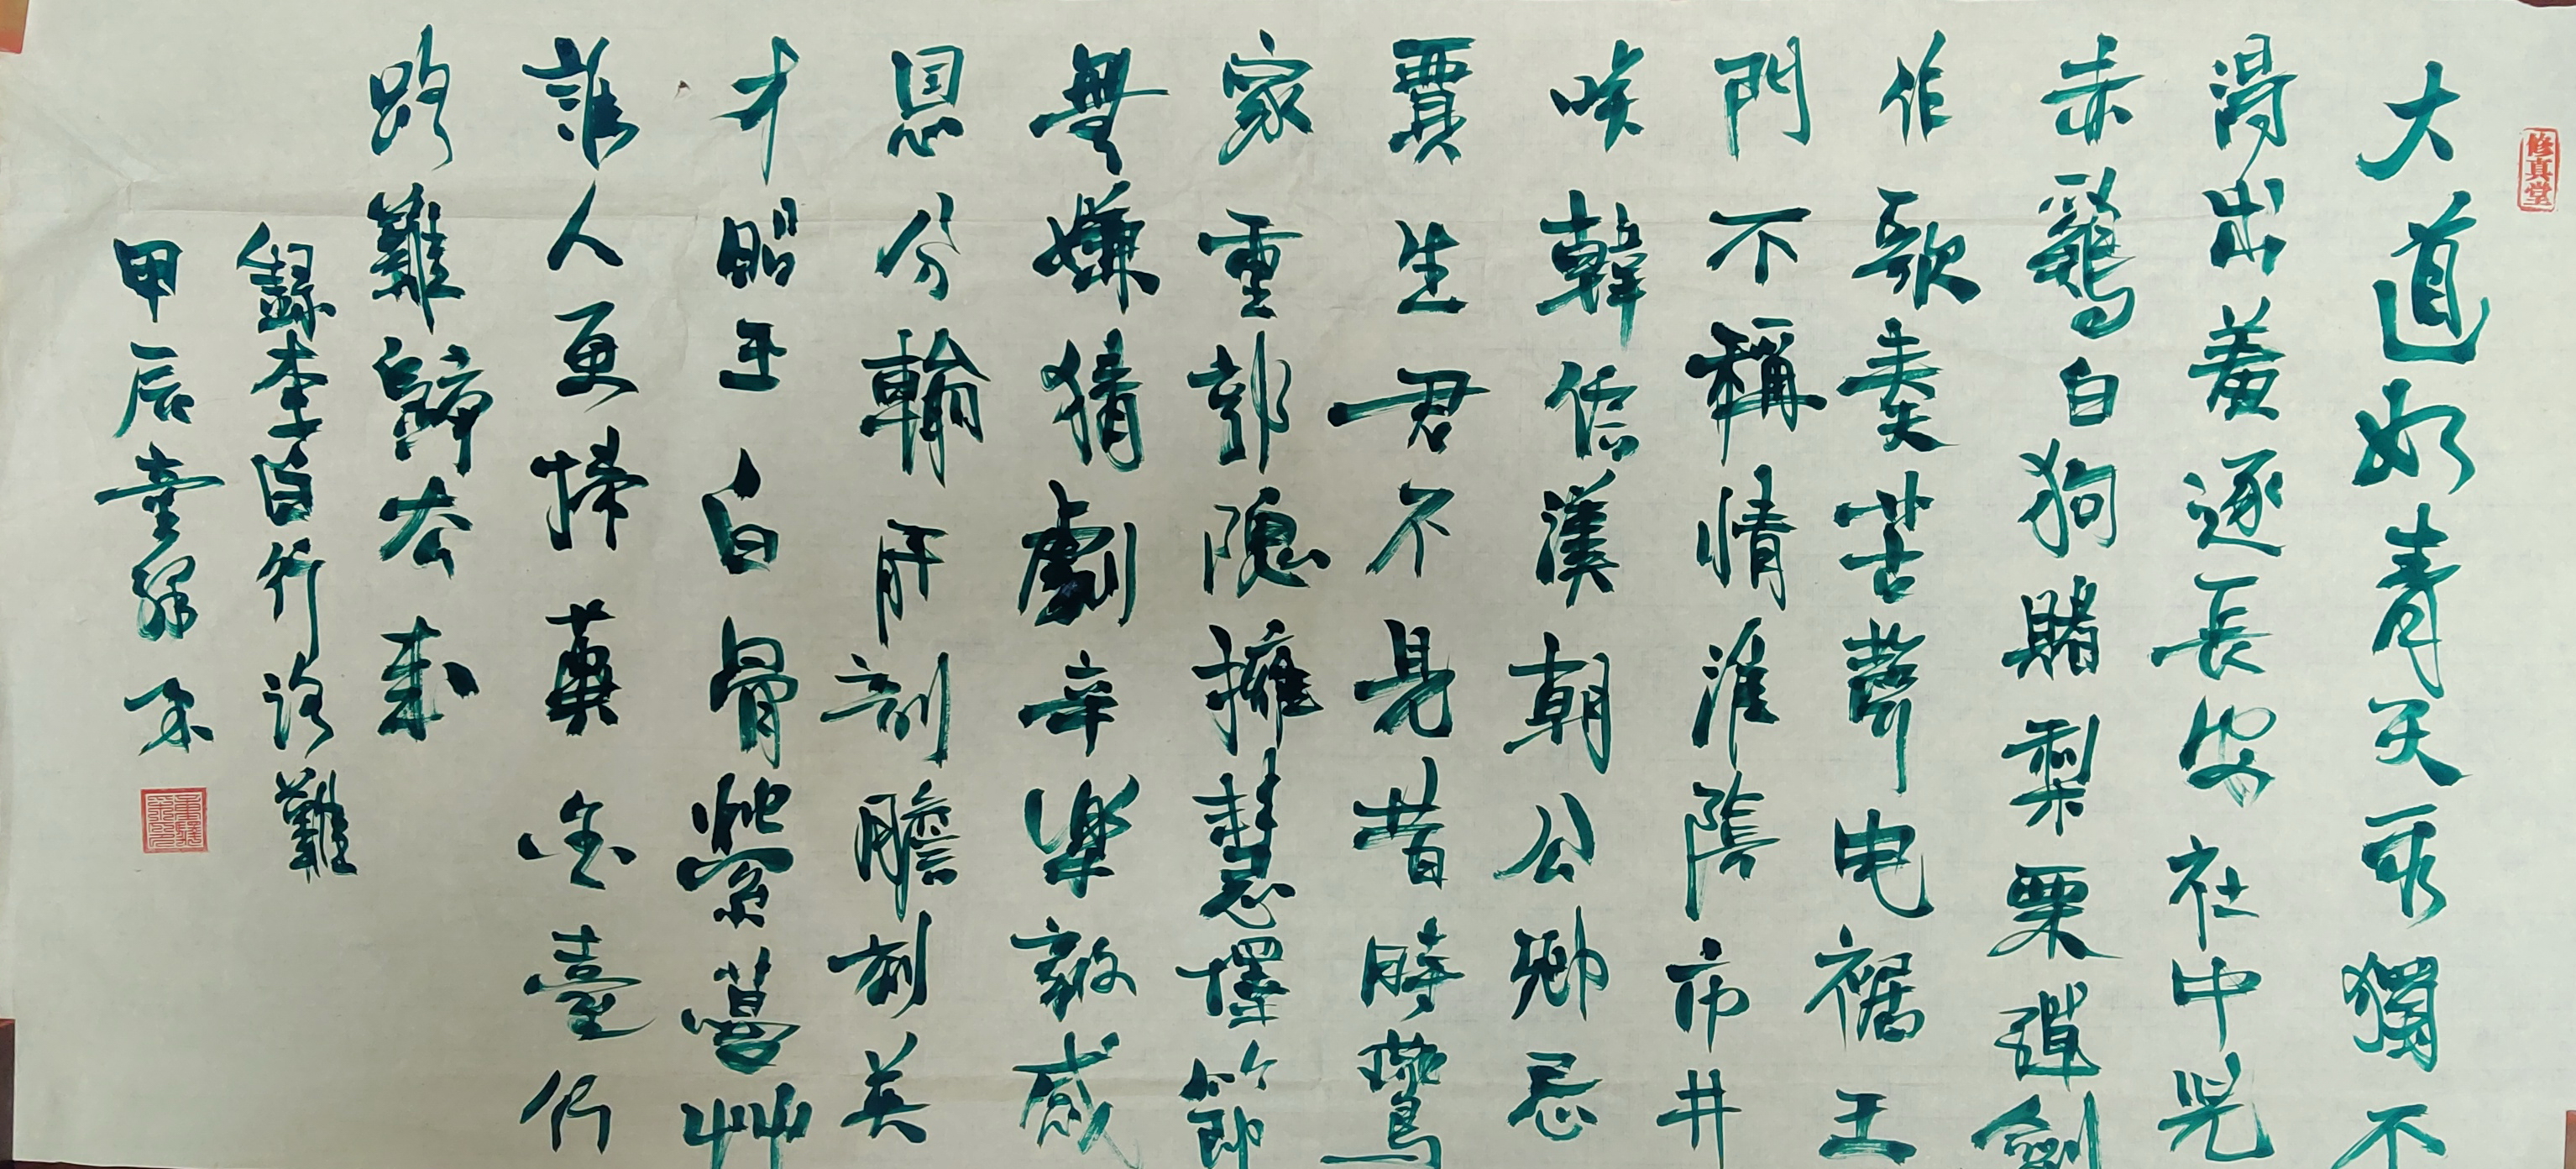 修真堂
大道如青天我獨不
得出羞逐長安社中兒
赤雞白狗賭梨栗彈劍
作歌奏苦聲曳裾王
門不稱情淮陰市井
咲韓信漢朝公卿忌
賈生君不見昔時鷰
家重郭隗擁慧擇節
無嫌猜劇辛樂毅感
恩分輸肝剖膽効英
才昭王白骨縈蔓艸
誰人更掃黃金臺行
路難歸去來
錄李白行路難
甲辰童